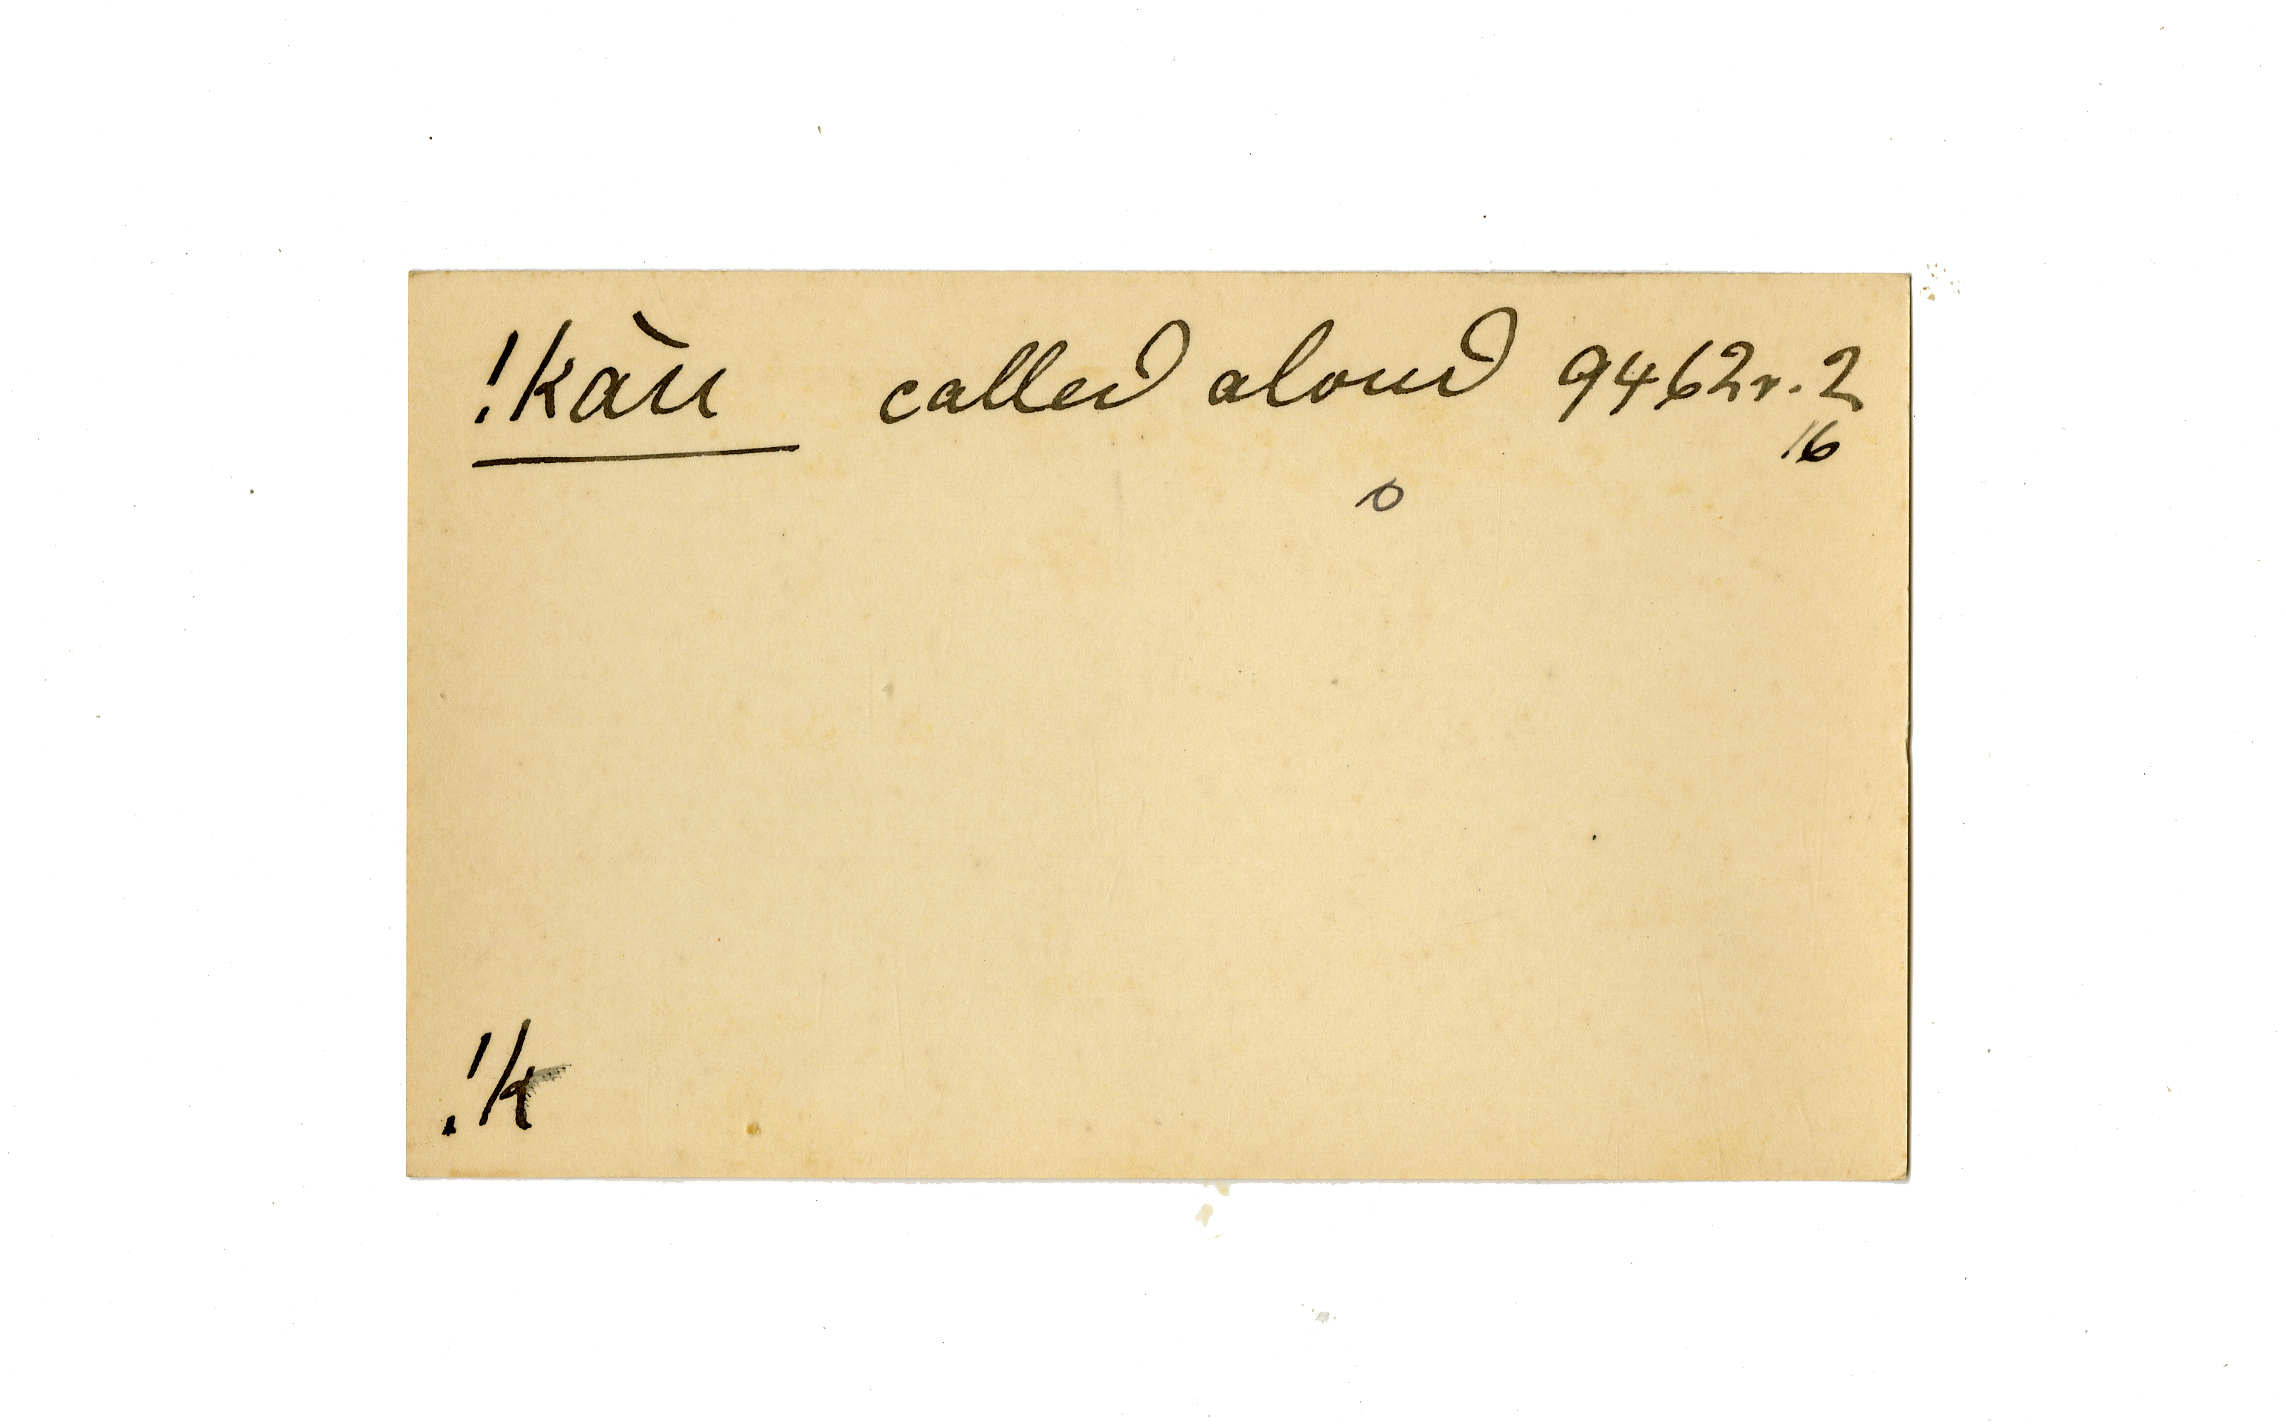 !kàu called aloud 9462r. 2
16
o
!k